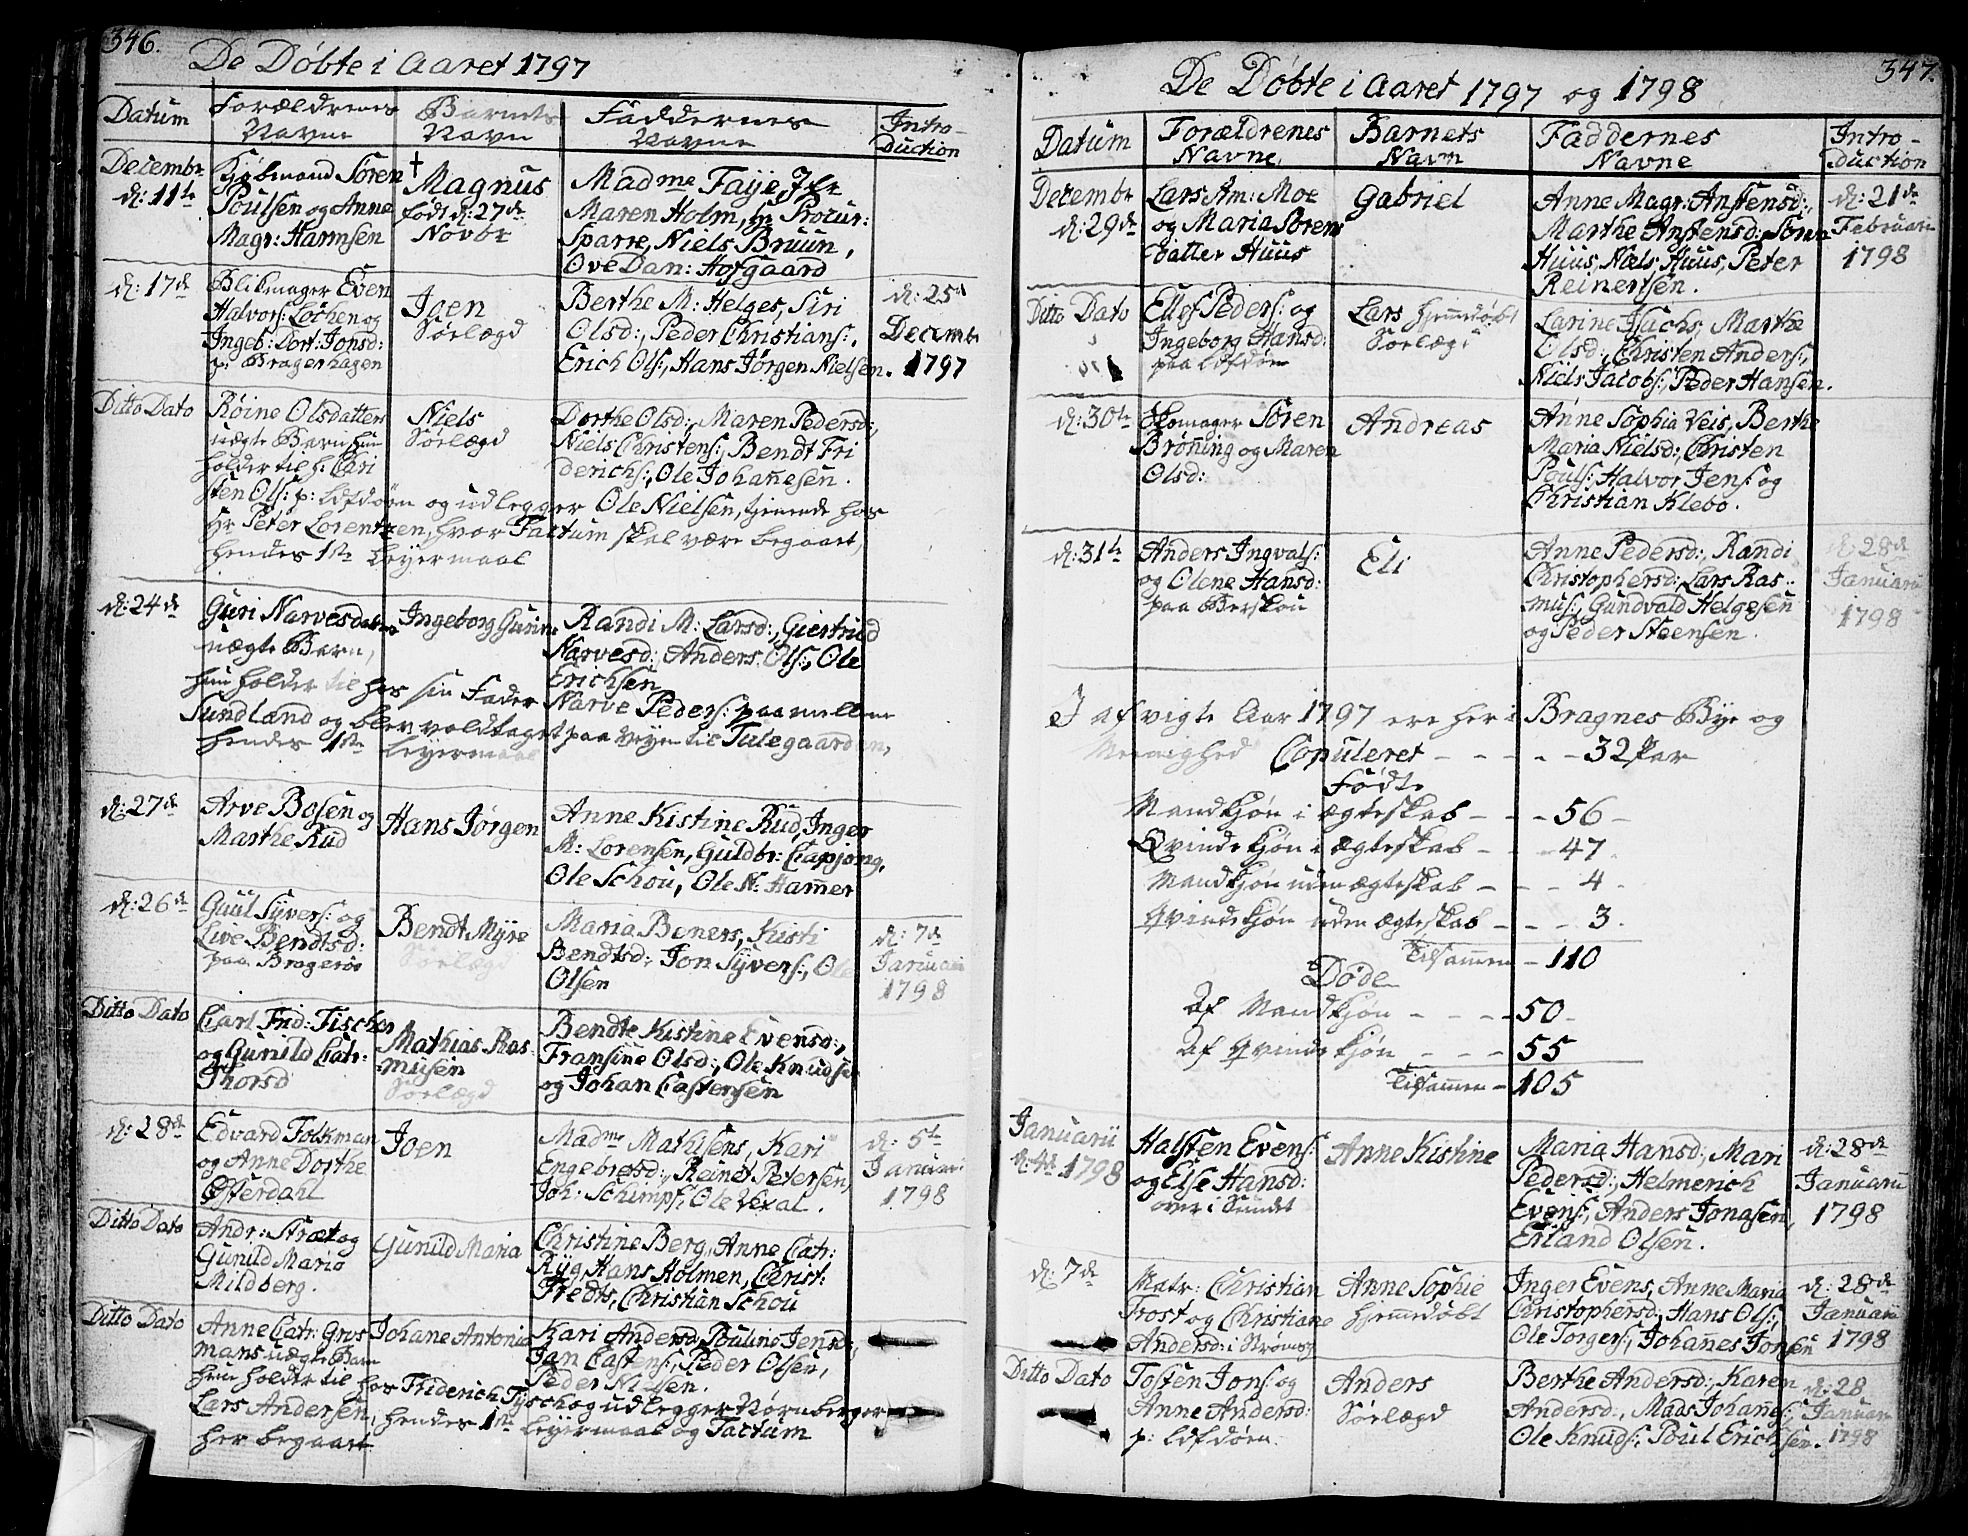 346.
De Døbte i Aaret 1797
Datum
Forældrenes Navne
Barnets Navn
Faddernes Navne
Intro-
Duction
Decembr
d: 11te
Kjøbmand Søren
Poulsen og Anne
Magr: Harmsen
†
Magnus
født d: 27de
Novbr
Madme Faÿe, Jfr
Maren Holm, Hr Procur:
Sparre, Niels Bruun,
Ove Dan: Hofgaard
d: 17de
Blikmager Even
Halvors: Løchen og
Ingeb: Dort: Jonsd:
p: Bragerhagen
Joen
Sørlægd
Berthe M: Helges, Siri
Olsd:, Peder Christians:,
Erich Ols:, Hans Jørgen Nielsen.
d: 25de
Decembr
1797
Ditto Dato
Røine Olsdatter
uægte Barn, hun
holder til h. Chri
sten Ols: p: Løfdøen og udlegger Ole Nielsen, tjenende hos
Hr Peter Lorentzen, hvor Factum skal være begaaet,
hendes 1ste Leyermaal
Niels
Sørlægd
Dorthe Olsd:, Maren Pedersd:,
Niels Christens:, Bendt Fri
derichs:, Ole Johannesen.
d: 24de
Guri Narvesdatter
uægte Barn,
hun holder til hos sin Fader Narve Peders: paa mellem
Sundland og blev voldtaget paa veyen til Tulegaarden,
hendes 1ste Leyermaal
Ingeborg Gurine
Randi M: Larsd:, Giertrud
Narvesd:, Anders Ols:, Ole
Erichsen
d: 27de
Arve Bosen og
Marthe Rud
Hans Jørgen
Anne Kistine Rud, Inger
M: Lorensen, Guldbr: Capjong,
Ole Schou, Ole N: Hamer
d: 26de
Guul Syvers: og
Live Bendtsd:
paa Bragerøe
Bendt Myre
Sørlægd
Maria Beners, Kisti
Bendtsd:, Jon Syvers:, Ole
Olsen
d: 7de
Januarii
1798
Ditto Dato
Carl Frid: Fischer
og Gunild Catr:
Thorsd
Mathias Ras
musen
Sørlægd
Bendte Kistine Evensd:,
Fransine Olsd:, Ole Knudsen
og Johan Castensen
d: 28de
Edvard Folkman
og Anne Dorthe
Efferdahl
Joen
Madme Mathisens, Kari
Engebresd:, Reinet Petersen,
Joh: Schimpf, Ole Vexal.
d: 5te
Januari
1798
Ditto Dato
Andr: Stræt og
Gunild Maria
Mildberg.
Gunild Maria
Christine Berg, Anne Catr:
Ryg, Hans Holmen, Christ:
Fredts, Christian Schou
Ditto Dato
Anne Catr: Gros
mans uægte Barn
hun holder til hos Friderich Tysch og udlegger Nørnberger
Lars Andersen, hendes 1ste Leyermaal og Factum
her begaaet
Johane Antonia
Kari Andersd:, Pouline Jensd:,
Jan Castens:, Peder Olsen,
Peder Nilsen.
347.
De Døbte i Aaret 1797 og 1798
Datum
Forældrenes
Navne
Barnets
Navn
Faddernes
Navne
Intro-
duction
Decembr
d: 29de
Lars Am: Moe
og Maria Sørens
datter Huus
Gabriel
Anne Magr: Anstensd:,
Marthe Anstensd:, Søren
Huus, Niels Huus, Peter
Reinersen.
d: 21de
Februarii
1798
Ditto Dato
Ellef Peders: og
Ingeborg Hansd:
paa Løfdøen
Lars Hjemmedøbt
Sørlægd
Larine Isachs, Marthe
Olsd:, Christen Anders:,
Niels Jacobs:, Peder Hansen.
d: 30te
Skomager Søren
Brøning og Maren
Olsd:
Andreas
Anne Sophia Veis, Berthe
Maria Nielsd:, Christen
Pouls: Halvor Jens: og
Christian Klebo.
d: 31te
Anders Ingvals:
og Olene Hansd:
paa Berskou
Eli
Anne Pedersd:, Randi
Christophersd: Lars Ras-
mus:, Gundvald Helgesen
og Peder Steensen.
d: 28de
Januarii
1798
I afvigte Aar 1797 ere her i Bragnes Bye og
Menighed Copuleret - - - - - 32 Par
Fødte
Mandkjøn i ægteskab - - - 56
Qvindekjøn i Ægteskab - - - 47
Mandkjøn uden ægteskab - - - 4
Qvindekjøn uden ægteskab - - - 3.
Tilsammen - 110
Døde
Af Mandkjøn - - - - 50
Af Qvindekjøn - - - 55
Tilsammen - 105
Januarii
d: 4de 1798
Halsten Evens:
og Else Hansd:
over i Sundet
Anne Kistine
Maria Hansd:, Mari
Pedersd:, Helmerich
Evens:, Anders Jonasen,
Erland Olsen.
d: 28de
Januarii
1798
d: 7de
Matr: Christian
Trost og Christiane
Andersd: i Strømsø
Anne Sophie
hjemmedøbt
Inger Evens, Anne Maria
Christophersd:, Hans Ols:,
Ole Torgers:, Johannes Jonsen
d: 28de
Januarii
1798
Ditto Dato
Tosten Jons: og
Anne Andersd:
p: Løfdøen.
Anders
Sørlægd
Berthe Andersd:, Karen
Andersd:, Mads Johanes:,
Ole Knuds:, Poul Erichsen.
d: 28
Januarii
1798